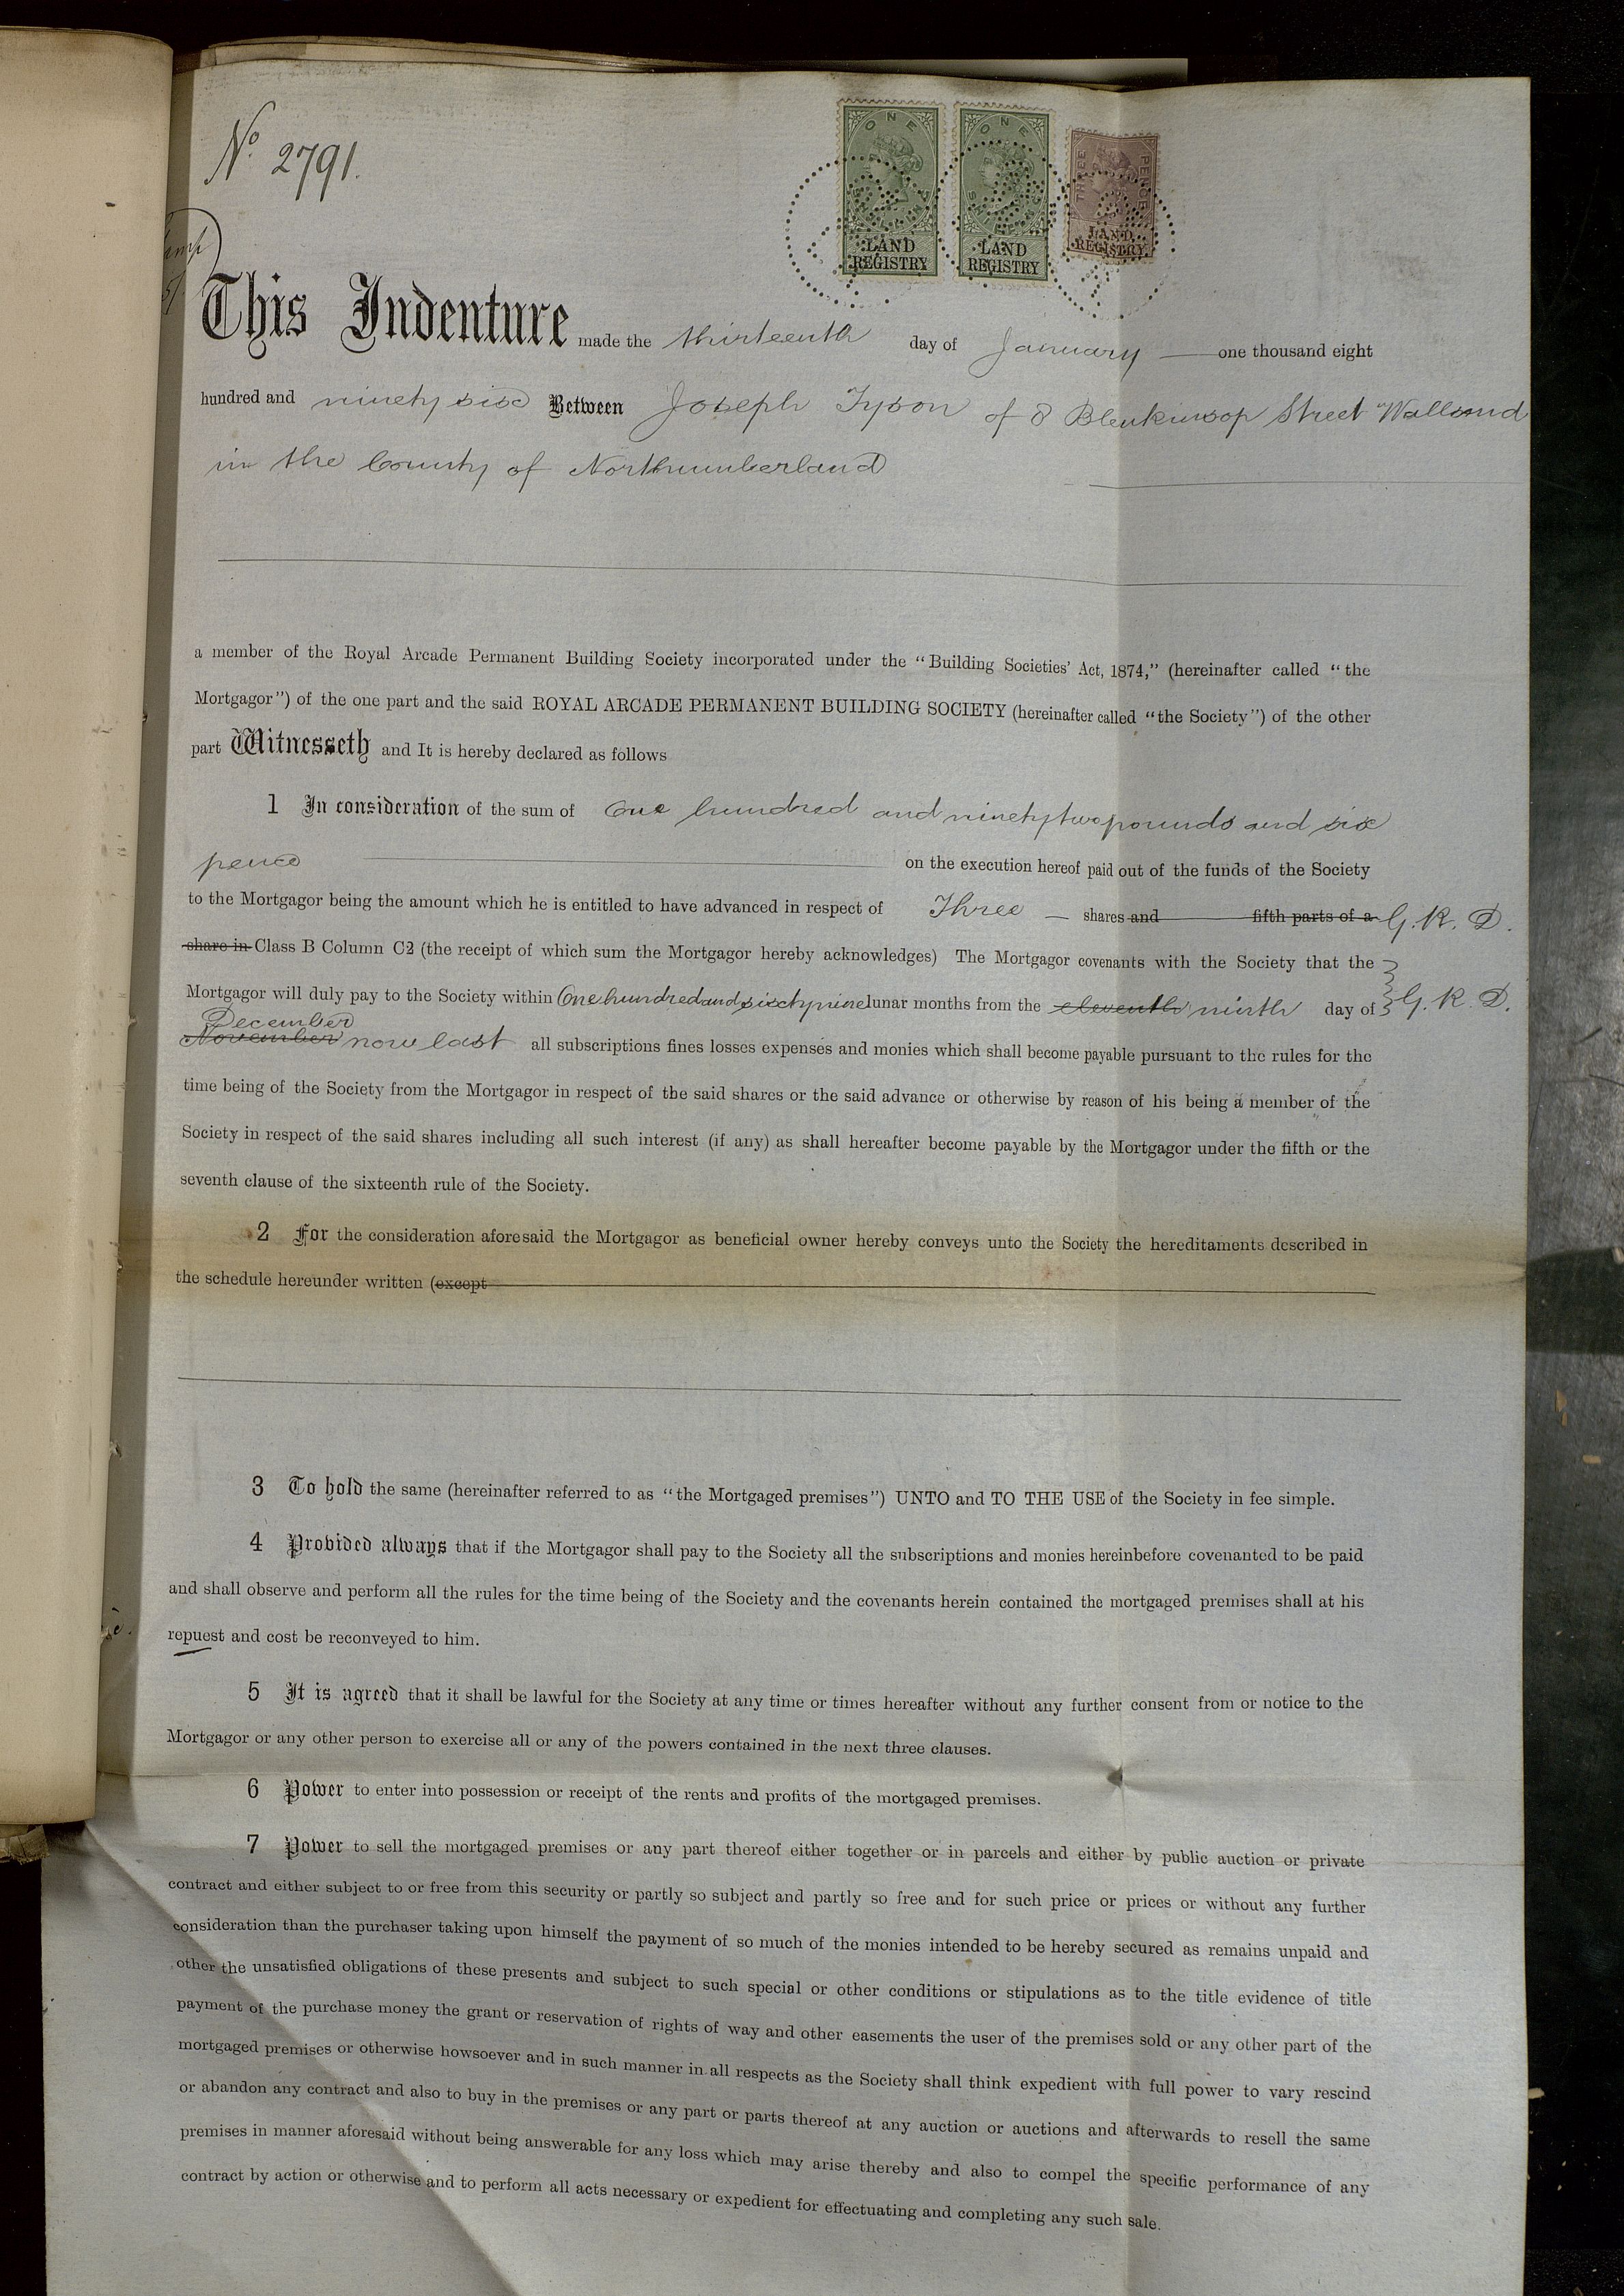 No. 2791.
ONE ONE THREE PENCE
LAND REGISTRY LAND REGISTRY LAND REGISTRY
This Indenture made the thirteenth day of January one thousand eight
hundred and ninety six Between Joseph Tyson of 8 Blenkinsop Street Wallsend
in the County of Northumberland
a member of the Royal Arcade Permanent Building Society incorporated under the "Building Societies' Act, 1874," (hereinafter called "the
Mortgagor") of the one part and the said ROYAL ARCADE PERMANENT BUILDING SOCIETY (hereinafter called "the Society") of the other
part Witnesseth and It is hereby declared as follows
1 In consideration of the sum of One hundred and ninety two pounds and six
pence on the execution hereof paid out of the funds of the Society
to the Mortgagor being the amount which he is entitled to have advanced in respect of Three shares and fifth parts of a G. K. D.
share in Class B Column C2 (the receipt of which sum the Mortgagor hereby acknowledges) The Mortgagor covenants with the Society that the
Mortgagor will duly pay to the Society within One hundred and sixty nine lunar months from the eleventh ninth day of G. K. D.
December
November now last all subscriptions fines losses expenses and monies which shall become payable pursuant to the rules for the
time being of the Society from the Mortgagor in respect of the said shares or the said advance or otherwise by reason of his being a member of the
Society in respect of the said shares including all such interest (if any) as shall hereafter become payable by the Mortgagor under the fifth or the
seventh clause of the sixteenth rule of the Society.
2 For the consideration aforesaid the Mortgagor as beneficial owner hereby conveys unto the Society the hereditaments described in
the schedule hereunder written (except
3 To hold the same (hereinafter referred to as "the Mortgaged premises") UNTO and TO THE USE of the Society in fee simple.
4 Provided always that if the Mortgagor shall pay to the Society all the subscriptions and monies hereinbefore covenanted to be paid
and shall observe and perform all the rules for the time being of the Society and the covenants herein contained the mortgaged premises shall at his
repuest and cost be reconveyed to him.
5 It is agreed that it shall be lawful for the Society at any time or times hereafter without any further consent from or notice to the
Mortgagor or any other person to exercise all or any of the powers contained in the next three clauses.
6 Power to enter into possession or receipt of the rents and profits of the mortgaged premises.
7 Power to sell the mortgaged premises or any part thereof either together or in parcels and either by public auction or private
contract and either subject to or free from this security or partly so subject and partly so free and for such price or prices or without any further
consideration than the purchaser taking upon himself the payment of so much of the monies intended to be hereby secured as remains unpaid and
other the unsatisfied obligations of these presents and subject to such special or other conditions or stipulations as to the title evidence of title
payment of the purchase money the grant or reservation of rights of way and other easements the user of the premises sold or any other part of the
mortgaged premises or otherwise howsoever and in such manner in all respects as the Society shall think expedient with full power to vary rescind
or abandon any contract and also to buy in the premises or any part or parts thereof at any auction or auctions and afterwards to resell the same
premises in manner aforesaid without being answerable for any loss which may arise thereby and also to compel the specific performance of any
contract by action or otherwise and to perform all acts necessary or expedient for effectuating and completing any such sale.